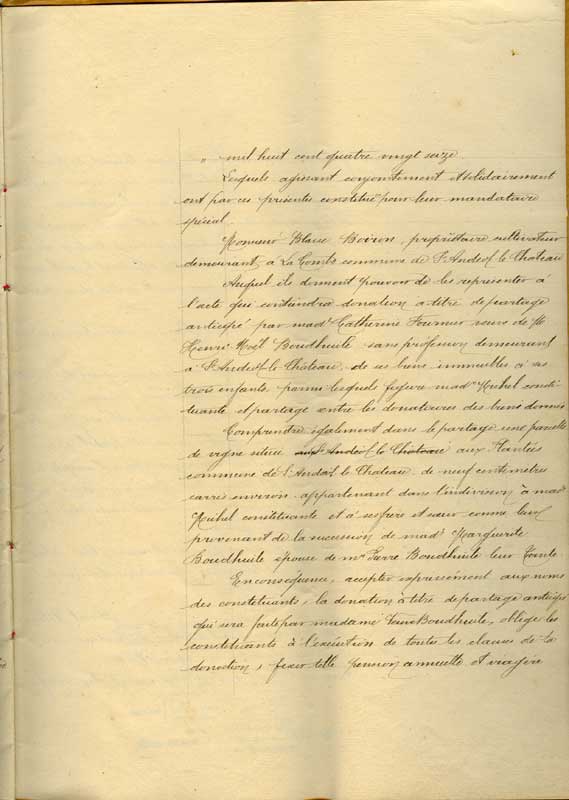 " mil huit cent quatre vingt seize.
Lesquels agissant conjointement et solidairement
ont par ces présentes constitué pour leur mandataire
spécial,
Monsieur Blaise Boiron, propriétaire cultivateur
demeurant à La Combe commune de St Andéol le Château
Auquel ils donnent pouvoir de les représenter à
l'acte qui contiendra donation à titre de partage
anticipé par made Catherine Fournier veuve de M
Henri Noël Boudheuile sans profession demeurant
à St Andéol-le Château, de ses biens immeubles à ses
trois enfants parmi lesquels figure made Michel consti-
tuante et partage entre les donataires des biens donnés
Comprendre également dans le partage une parcelle
de vigne située à St Andéol le Château aux Plantées
commune de St Andéol le Château, de neuf cents mètres
carrés environ appartenant dans l'indivision à made
Michel constituante et à ses frère et sœur comme leur
provenant de la succession de made Marguerite
Boudheuile épouse de mr Pierre Boudheuile leur tante
En conséquence, accepter expressément aux noms
des constituants, la donation à titre de partage anticipé
qui sera faite par madame Veuve Boudheuile, oblige les
constituants à l'exécution de toutes les clauses de la
donation, fixer telle pension annuelle et viagère